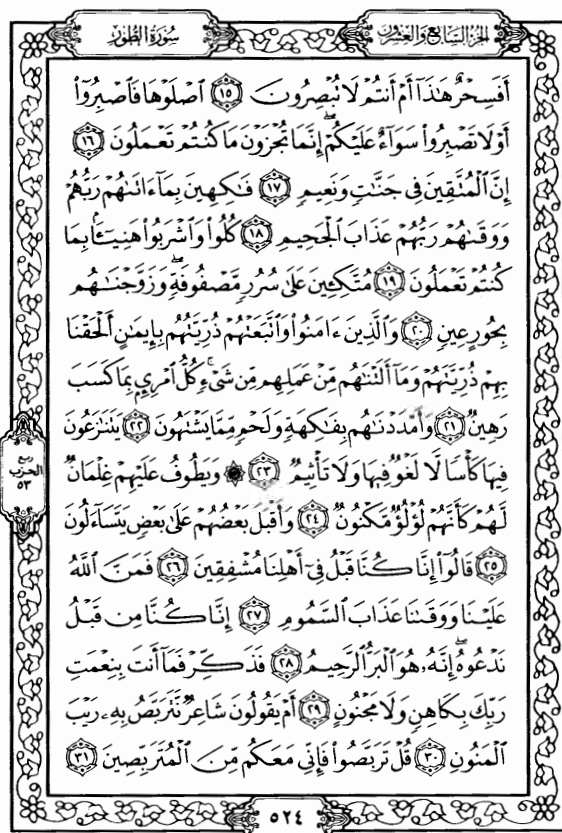 الجزء السابع والعشرون
سورة الطور
أَفَسِحْرٌ هَٰذَآ أَمْ أَنتُمْ لَا تُبْصِرُونَ ۝١٥ ٱصْلَوْهَا فَٱصْبِرُوٓا۟
أَوْ لَا تَصْبِرُوا۟ سَوَآءٌ عَلَيْكُمْ ۖ إِنَّمَا تُجْزَوْنَ مَا كُنتُمْ تَعْمَلُونَ ۝١٦
إِنَّ ٱلْمُتَّقِينَ فِى جَنَّٰتٍ وَنَعِيمٍ ۝١٧ فَٰكِهِينَ بِمَآ ءَاتَىٰهُمْ رَبُّهُمْ
وَوَقَىٰهُمْ رَبُّهُمْ عَذَابَ ٱلْجَحِيمِ ۝١٨ كُلُوا۟ وَٱشْرَبُوا۟ هَنِيٓـًٔۢا بِمَا
كُنتُمْ تَعْمَلُونَ ۝١٩ مُتَّكِـِٔينَ عَلَىٰ سُرُرٍ مَّصْفُوفَةٍ ۖ وَزَوَّجْنَٰهُم
بِحُورٍ عِينٍ ۝٢٠ وَٱلَّذِينَ ءَامَنُوا۟ وَٱتَّبَعَتْهُمْ ذُرِّيَّتُهُم بِإِيمَٰنٍ أَلْحَقْنَا
بِهِمْ ذُرِّيَّتَهُمْ وَمَآ أَلَتْنَٰهُم مِّنْ عَمَلِهِم مِّن شَىْءٍ ۚ كُلُّ ٱمْرِئٍۭ بِمَا كَسَبَ
رَهِينٌ ۝٢١ وَأَمْدَدْنَٰهُم بِفَٰكِهَةٍ وَلَحْمٍ مِّمَّا يَشْتَهُونَ ۝٢٢ يَتَنَٰزَعُونَ
فِيهَا كَأْسًا لَّا لَغْوٌ فِيهَا وَلَا تَأْثِيمٌ ۝٢٣ ۞ وَيَطُوفُ عَلَيْهِمْ غِلْمَانٌ
لَّهُمْ كَأَنَّهُمْ لُؤْلُؤٌ مَّكْنُونٌ ۝٢٤ وَأَقْبَلَ بَعْضُهُمْ عَلَىٰ بَعْضٍ يَتَسَآءَلُونَ
۝٢٥ قَالُوٓا۟ إِنَّا كُنَّا قَبْلُ فِىٓ أَهْلِنَا مُشْفِقِينَ ۝٢٦ فَمَنَّ ٱللَّهُ
عَلَيْنَا وَوَقَىٰنَا عَذَابَ ٱلسَّمُومِ ۝٢٧ إِنَّا كُنَّا مِن قَبْلُ
نَدْعُوهُ ۖ إِنَّهُۥ هُوَ ٱلْبَرُّ ٱلرَّحِيمُ ۝٢٨ فَذَكِّرْ فَمَآ أَنتَ بِنِعْمَتِ
رَبِّكَ بِكَاهِنٍ وَلَا مَجْنُونٍ ۝٢٩ أَمْ يَقُولُونَ شَاعِرٌ نَّتَرَبَّصُ بِهِۦ رَيْبَ
ٱلْمَنُونِ ۝٣٠ قُلْ تَرَبَّصُوا۟ فَإِنِّى مَعَكُم مِّنَ ٱلْمُتَرَبِّصِينَ ۝٣١
ربع
الحزب
٥٣
٥٢٤